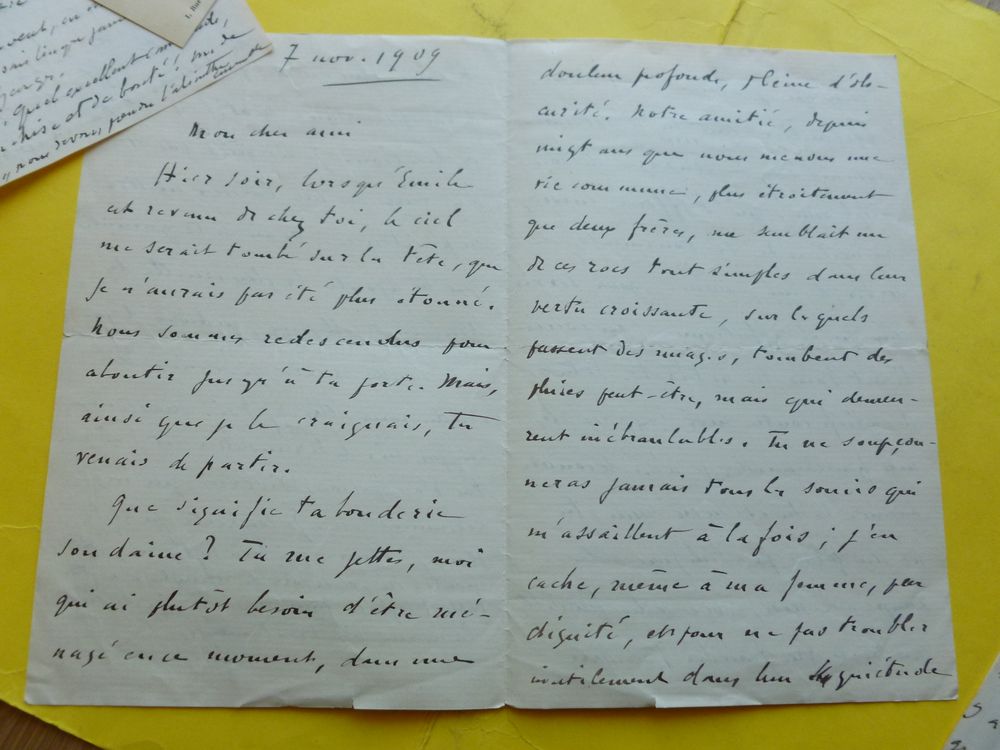 7 nov. 1909
Mon cher ami
Hier soir, lorsqu'Émile
est revenu de chez toi, le ciel
me serait tombé sur la tête, que
je n'aurais pas été plus étonné.
Nous sommes redescendus pour
aboutir jusqu'à ta porte. Mais,
ainsi que je le craignais, tu
venais de partir.
Que signifie ta bouderie
soudaine ? Tu me jettes, moi
qui ai plutôt besoin d'être mé-
nagé en ce moment, dans une
douleur profonde, pleine d'obs-
curité. Notre amitié, depuis
vingt ans que nous menons une
vie commune, plus étroitement
que deux frères, me semblait un
de ces rocs tout simples dans leur
vertu croissante, sur lesquels
passent des nuages, tombent des
pluies peut-être, mais qui demeu-
rent inébranlables. Tu ne soupçon-
neras jamais tous les soucis qui
m'assaillent à la fois ; j'en
cache, même à ma femme, par
dignité, et pour ne pas troubler
inutilement dans leur quiétude
vent, en
jamais
quel excellent
et de bonté !
nous devons prendre